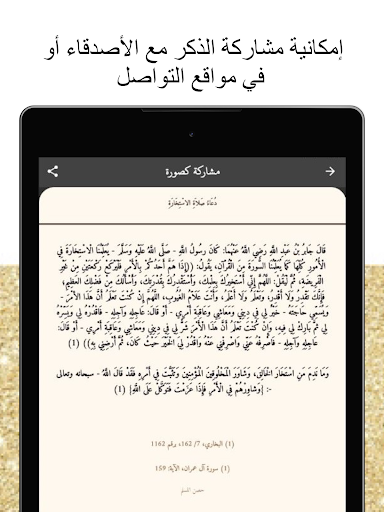 إمكانية مشاركة الذكر مع الأصدقاء أو
في مواقع التواصل
مشاركة كصورة
دُعَاءُ صَلَاةِ الاسْتِخَارَةِ
قَالَ جَابِرُ بْنُ عَبْدِ اللَّهِ رَضِيَ اللَّهُ عَنْهُمَا: كَانَ رَسُولُ اللَّهِ - صَلَّى اللَّهُ عَلَيْهِ وَسَلَّمَ - يُعَلِّمُنَا الاسْتِخَارَةَ فِي
الْأُمُورِ كُلِّهَا كَمَا يُعَلِّمُنَا السُّورَةَ مِنَ الْقُرْآنِ، يَقُولُ: ((إِذَا هَمَّ أَحَدُكُمْ بِالْأَمْرِ فَلْيَرْكَعْ رَكْعَتَيْنِ مِنْ غَيْرِ
الْفَرِيضَةِ، ثُمَّ لِيَقُلْ: اللَّهُمَّ إِنِّي أَسْتَخِيرُكَ بِعِلْمِكَ، وَأَسْتَقْدِرُكَ بِقُدْرَتِكَ، وَأَسْأَلُكَ مِنْ فَضْلِكَ الْعَظِيمِ؛
فَإِنَّكَ تَقْدِرُ وَلَا أَقْدِرُ، وَتَعْلَمُ وَلَا أَعْلَمُ، وَأَنْتَ عَلَّامُ الْغُيُوبِ، اللَّهُمَّ إِنْ كُنْتَ تَعْلَمُ أَنَّ هَذَا الْأَمْرَ -
وَيُسَمِّي حَاجَتَهُ - خَيْرٌ لِي فِي دِينِي وَمَعَاشِي وَعَاقِبَةِ أَمْرِي - أَوْ قَالَ: عَاجِلِهِ وَآجِلِهِ - فَاقْدُرْهُ لِي وَيَسِّرْهُ
لِي ثُمَّ بَارِكْ لِي فِيهِ، وَإِنْ كُنْتَ تَعْلَمُ أَنَّ هَذَا الْأَمْرَ شَرٌّ لِي فِي دِينِي وَمَعَاشِي وَعَاقِبَةِ أَمْرِي - أَوْ قَالَ:
عَاجِلِهِ وَآجِلِهِ - فَاصْرِفْهُ عَنِّي وَاصْرِفْنِي عَنْهُ وَاقْدُرْ لِيَ الْخَيْرَ حَيْثُ كَانَ، ثُمَّ أَرْضِنِي بِهِ)) (1)
وَمَا نَدِمَ مَنِ اسْتَخَارَ الْخَالِقَ، وَشَاوَرَ الْمَخْلُوقِينَ الْمُؤْمِنِينَ وَتَثَبَّتَ فِي أَمْرِهِ، فَقَدْ قَالَ اللَّهُ - سبحانه وتعالى
-: {وَشَاوِرْهُمْ فِي الْأَمْرِ فَإِذَا عَزَمْتَ فَتَوَكَّلْ عَلَى اللَّهِ} (1)
(1) البخاري، 7/ 162، رقم 1162
(1) سورة آل عمران، الآية: 159
حصن المسلم